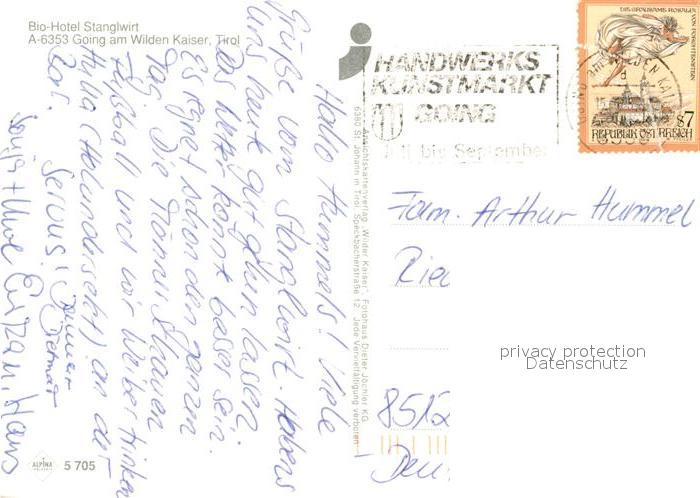 Bio-Hotel Stanglwirt
A-6353 Going am Wilden Kaiser, Tirol
Hallo Hummels! Viele
Grüße vom Stanglwirt. Haben
uns heut gut gehen lassen
Das Wetter könnt besser sein.
Es regnet schon den ganzen
Tag. Die Männer schauen
Fußball und wir Weiber trinken
Hulla (Holundersekt) an der
Bar. Servus!
Dietmar
Sonja + Uwe
Ansichtskartenverlag "Wilder Kaiser", Fotohaus Dieter Jöchler KG
6380 St. Johann in Tirol, Speckbacherstraße 12 Jede Vervielfältigung verboten
ALPINA
5 705
HANDWERKS
KUNSTMARKT
GOING
Juli bis September
DIE GRAUSAME ROSALIA
VON FORCHTENSTEIN
S7
REPUBLIK ÖSTERREICH
Fam. Arthur Hummel
Ried
8512
Deu
privacy protection
Datenschutz